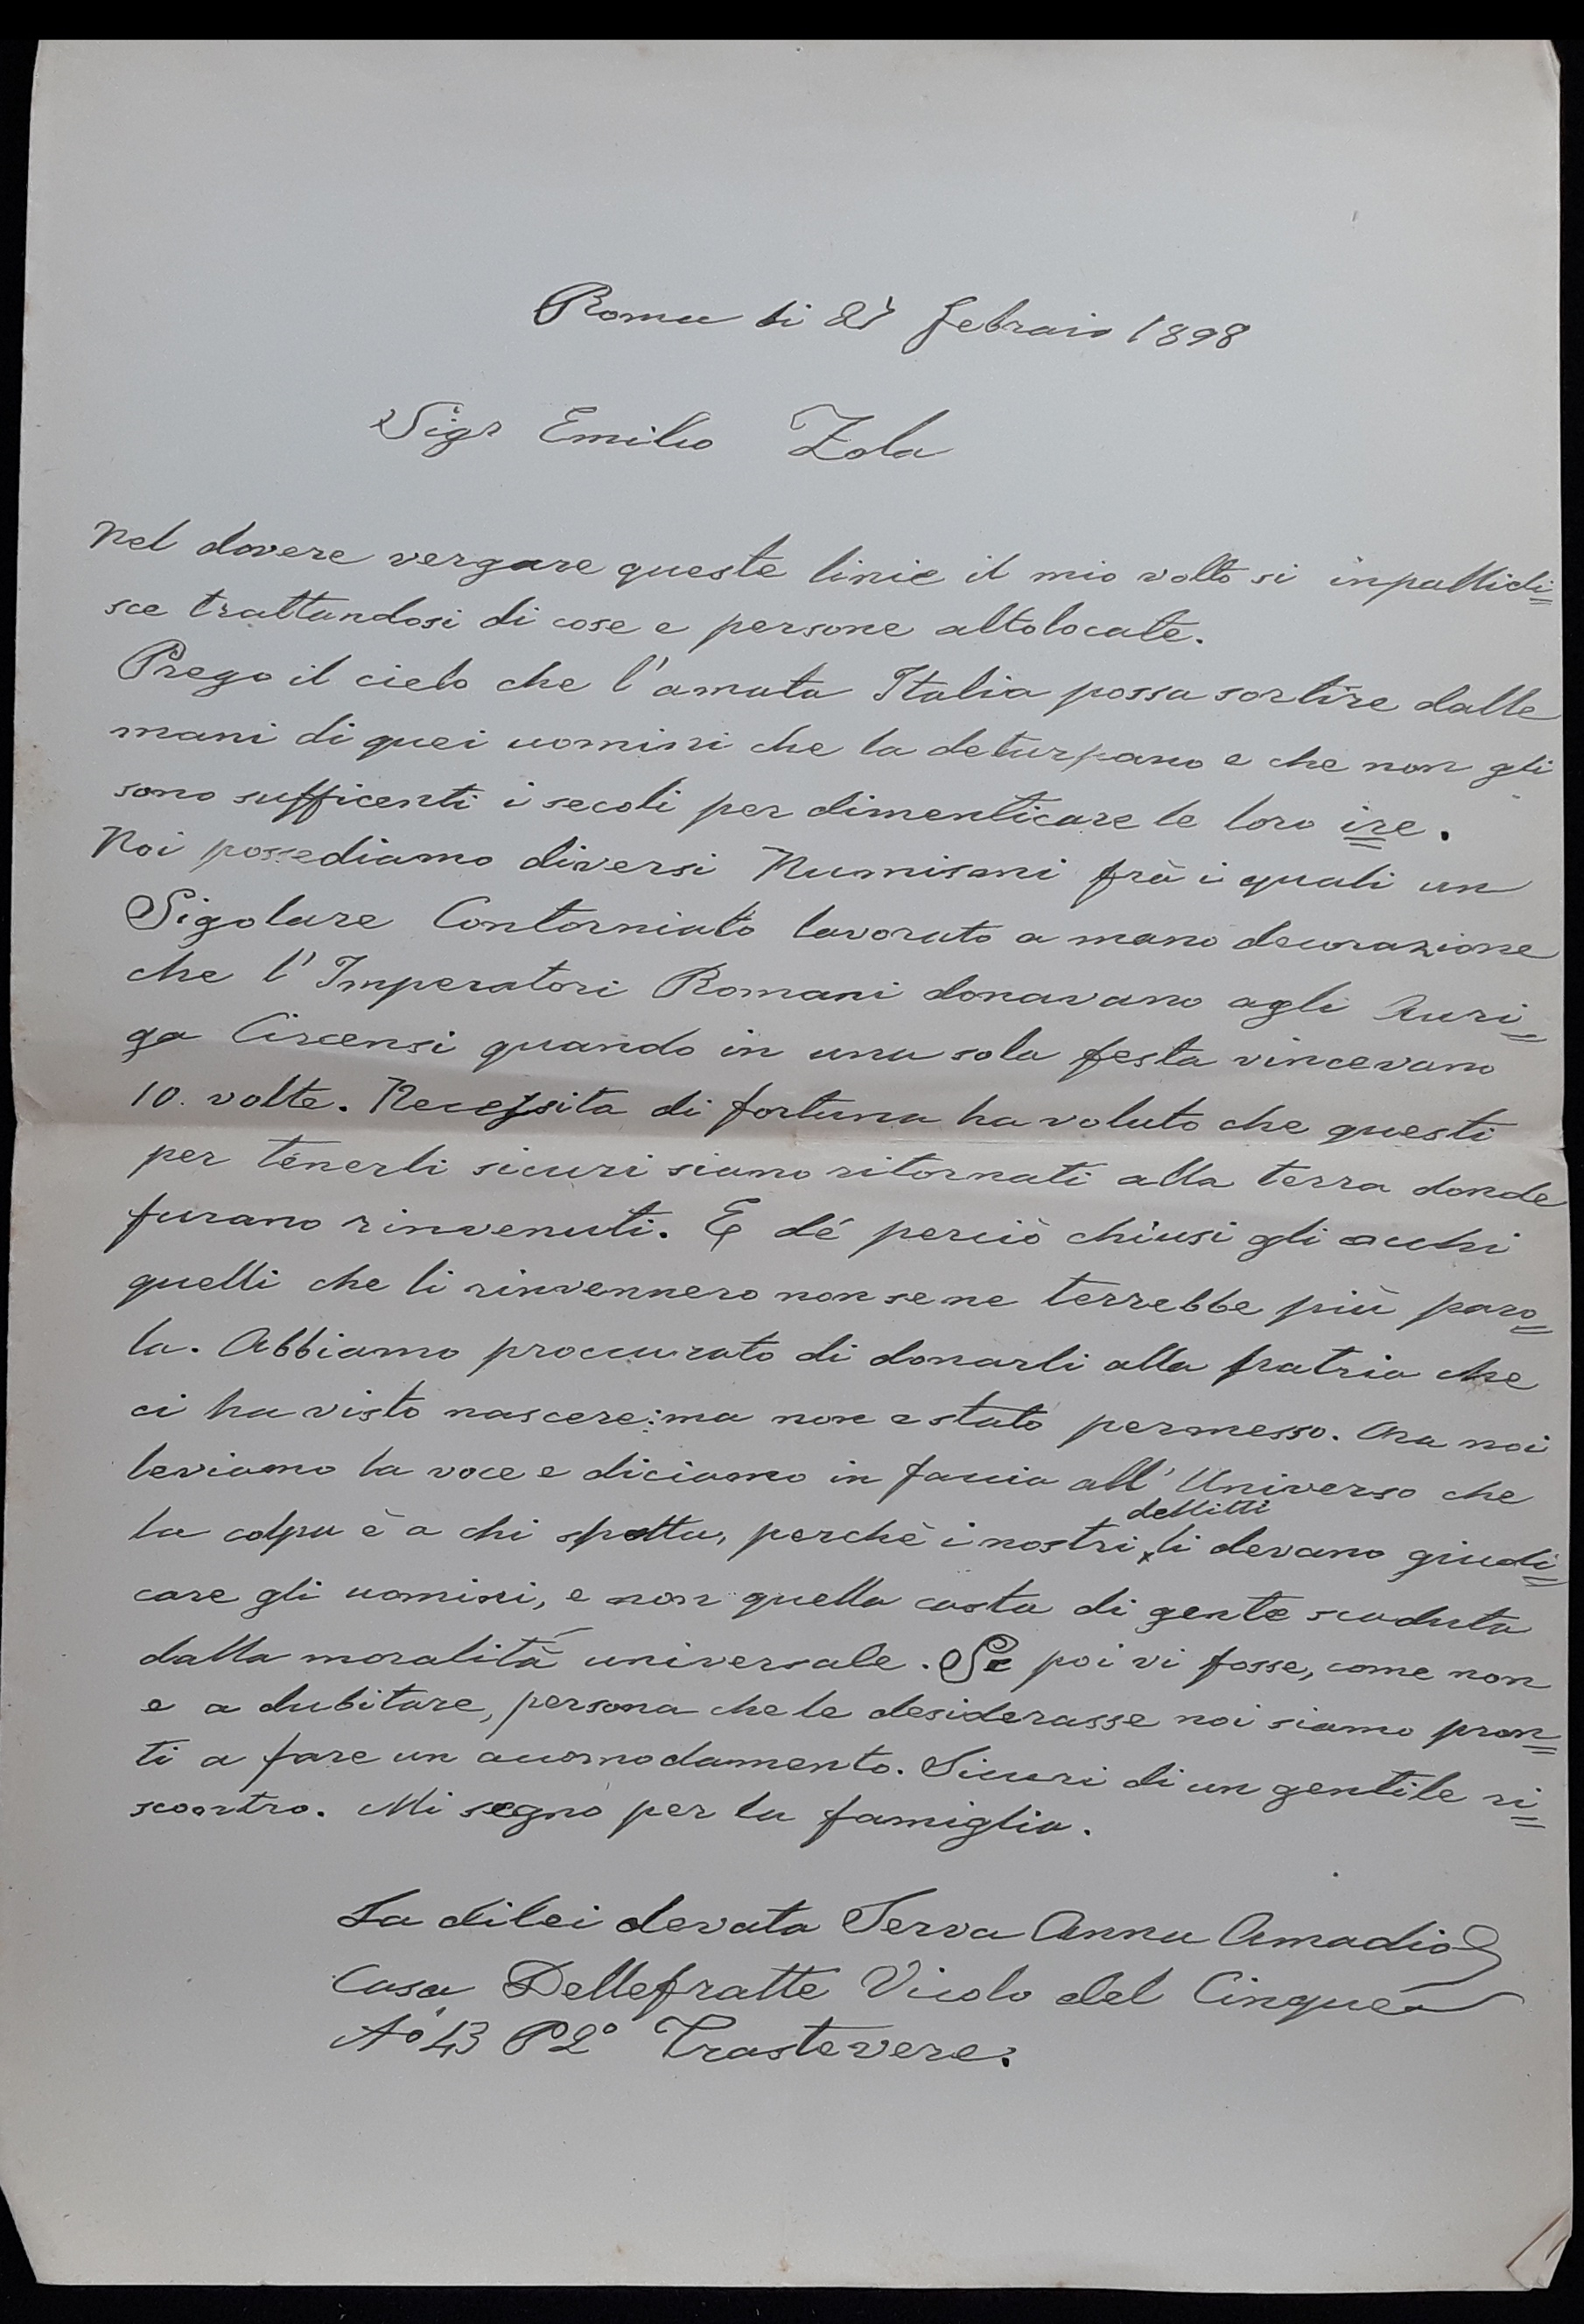 Roma li 27 Febraio 1898
Sigr Emilio Zola
Nel dovere vergare queste linie il mio volto si inpallidi=
sce trattandosi di cose e persone altolocate.
Prego il cielo che l'amata Italia possa sortire dalle
mani di quei uomini che la deturpano e che non gli
sono sufficenti i secoli per dimenticare le loro ire.
Noi possediamo diversi Numismi frà i quali un
Sigolare Contorniato lavorato a mano decorazione
che l'Imperatori Romani donavano agli Auri=
ga Circensi quando in una sola festa vincevano
10. volte. Necessita di fortuna ha voluto che questi
per tenerli sicuri siano ritornati alla terra donde
furano rinvenuti. E dé perciò chiusi gli occhi
quelli che li rinvennero non se ne terrebbe più paro=
la. Abbiamo proccurato di donarli alla patria che
ci ha visto nascere: ma non e stato permesso. Ora noi
leviamo la voce e diciamo in faccia all'Universo che
la colpa è a chi spetta, perchè i nostri dellitti li devano giudi=
care gli uomini, e non quella casta di gente scaduta
dalla moralità universale. Se poi vi fosse, come non
e a dubitare, persona che le desiderasse noi siamo pron=
ti a fare un accomodamento. Sicuri di un gentile ri=
scontro. Mi segno per la famiglia.
La di lei devata Serva Anna Amadio
Casa Dellefratte Vicolo del Cinque
No 43 P 2° Trastevere.